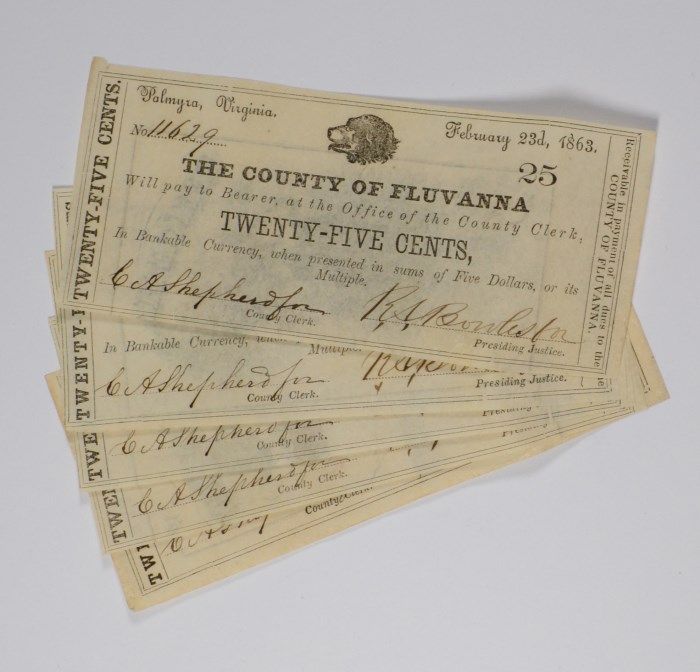 TWENTY-FIVE CENTS.
Palmyra, Virginia.
February 23d, 1863.
No. 11629
25
THE COUNTY OF FLUVANNA
Will pay to Bearer, at the Office of the County Clerk,
TWENTY-FIVE CENTS,
In Bankable Currency, when presented in sums of Five Dollars, or its
Multiple.
C A Shepherd for
County Clerk.
Presiding Justice.
Receivable in payment of all dues to the
COUNTY OF FLUVANNA.
TWENTY-F
In Bankable Currency, when
Multiple.
C A Shepherd for
County Clerk.
Presiding Justice.
TWE
C A Shepherd for
County Clerk.
Presiding
TWE
C A Shepherd for
County Clerk.
TW
C A
County Clerk.